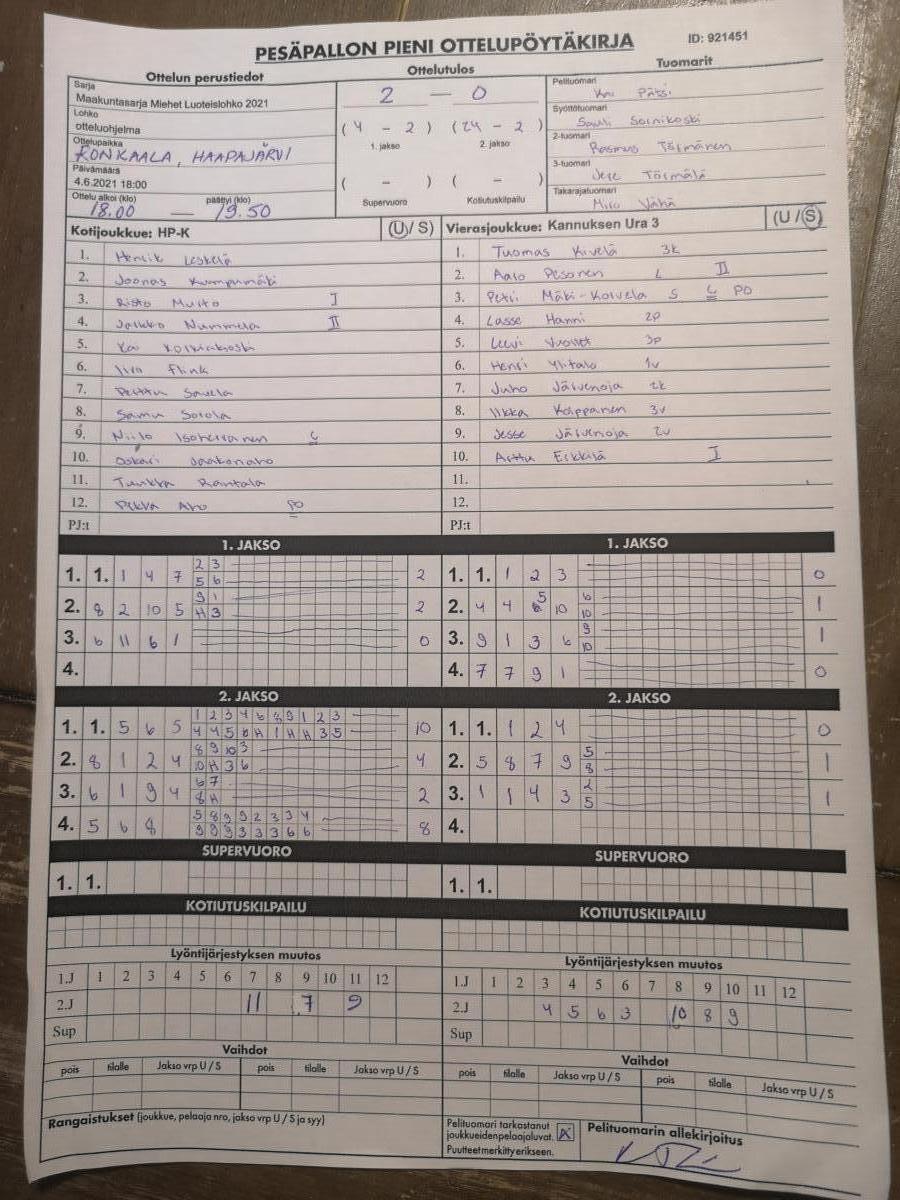 PESÄPALLON PIENI OTTELUPÖYTÄKIRJA
ID: 921451
Ottelun perustiedot
Sarja
Maakuntasarja Miehet Luoteislohko 2021
Lohko
otteluohjelma
Ottelupaikka
RONKAALA, HAAPAJÄRVI
Päivämäärä
4.6.2021 18:00
Ottelu alkoi (klo) päättyi (klo)
18.00 — 19.50
Ottelutulos
2 — 0
(4 - 2) (24 - 2)
1. jakso 2. jakso
( - ) ( - )
Supervuoro Kotiutuskilpailu
Tuomarit
Pelituomari
Syöttötuomari
Sauli Soinikoski
2-tuomari
Rasmus Törmänen
3-tuomari
Jere Törmälä
Takarajatuomari
Miro Vähä
Kotijoukkue: HP-K (U/S)
1. Henrik Leskelä
2. Joonas Kumpumäki
3. Risto Muito I
4. Jarkko Nummela II
5.
6. Iiro Flink
7. Perttu Savela
8. Samu Sorola
9. Niilo C
10. Oskari Jaakonaho
11. Tuukka Rantala
12. Pekka Aho PO
PJ:t
Vierasjoukkue: Kannuksen Ura 3 (U/S)
1. Tuomas Kivelä 3k
2. Aaro Pesonen L II
3. Petri Mäki-Koivela S C PO
4. Lasse Hanni 2p
5. Leevi 3p
6. Henri Ylitalo 1v
7. Juho Järvenoja 2k
8. Iikka Koippanen 3v
9. Jesse Järvenoja 2v
10. Arttu Eikkilä I
11.
12.
PJ:t
1. JAKSO
1. 1. 1 4 7 2 3 2
5 6
2. 8 2 10 5 9 1 2
H 3
3. 6 11 6 1 0
4.
1. JAKSO
1. 1. 1 2 3 0
2. 4 4 5 10 6 1
10
3. 9 1 3 6 9 1
10
4. 7 7 9 1 0
2. JAKSO
1. 1. 5 6 5 1 2 3 4 6 8 9 1 2 3 10
4 4 5 6 H 1 H H 3 5
2. 8 1 2 4 8 9 10 3 4
10 H 3 6
3. 6 1 9 4 6 7 2
8 H
4. 5 6 8 5 8 9 9 2 3 3 4 8
9 9 9 3 3 3 6 6
2. JAKSO
1. 1. 1 2 4 0
2. 5 8 7 9 5 1
8
3. 1 1 4 3 2 1
5
4.
SUPERVUORO
1. 1.
SUPERVUORO
1. 1.
KOTIUTUSKILPAILU
KOTIUTUSKILPAILU
Lyöntijärjestyksen muutos
1.J 1 2 3 4 5 6 7 8 9 10 11 12
2.J 11 7 9
Sup
Lyöntijärjestyksen muutos
1.J 1 2 3 4 5 6 7 8 9 10 11 12
2.J 4 5 6 3 10 8 9
Sup
Vaihdot
pois tilalle Jakso vrp U / S pois tilalle Jakso vrp U / S
Vaihdot
pois tilalle Jakso vrp U / S pois tilalle Jakso vrp U / S
Rangaistukset (joukkue, pelaaja nro, jakso vrp U / S ja syy)
Pelituomari tarkastanut
joukkueiden pelaajaluvat. X
Puutteet merkitty erikseen.
Pelituomarin allekirjoitus